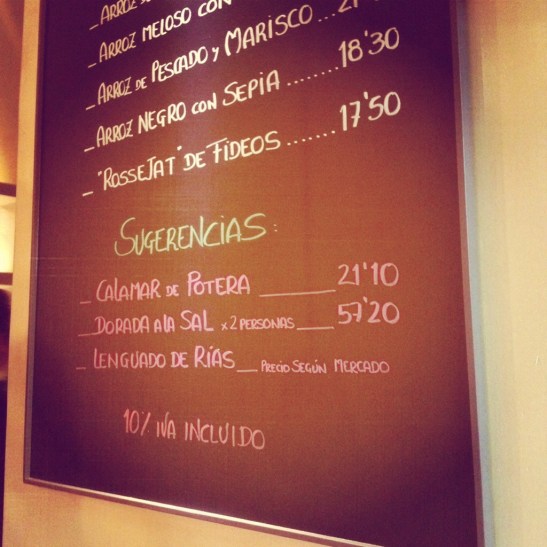 _ ARROZ
_ ARROZ MELOSO CON
_ ARROZ DE PESCADO Y MARISCO ...21'
_ ARROZ NEGRO CON SEPIA ........ 18'30
_ "ROSSEJAT" DE FIDEOS ....... 17'50
SUGERENCIAS:
_ CALAMAR DE POTERA ______ 21'10
_ DORADA A LA SAL x 2 PERSONAS ___ 57'20
_ LENGUADO DE RÍAS __ PRECIO SEGÚN MERCADO
10% IVA INCLUIDO